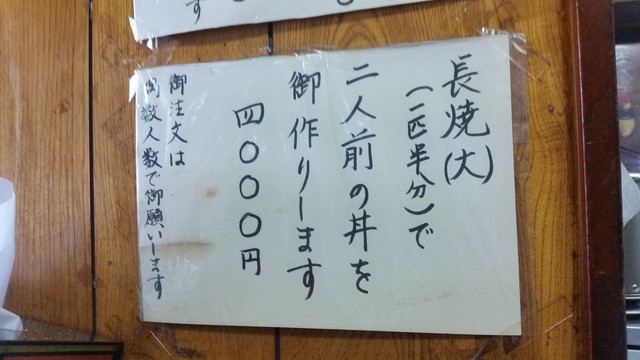 す
長焼(大)
(一匹半分)で
二人前の丼を
御作りします
四〇〇〇円
御注文は
偶数人数で御願いします